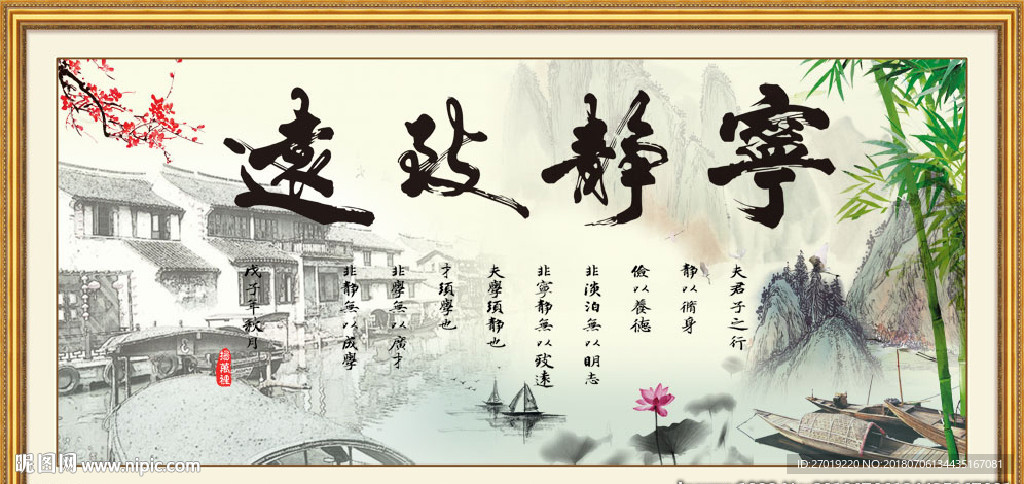 寧靜致遠
夫君子之行
靜以脩身
儉以養德
非淡泊無以明志
非寧靜無以致遠
夫學須靜也
才須學也
非學無以廣才
非靜無以成學
戊子年秋月
昵图网 www.nipic.com
ID:27019220 NO.20180706134435167081